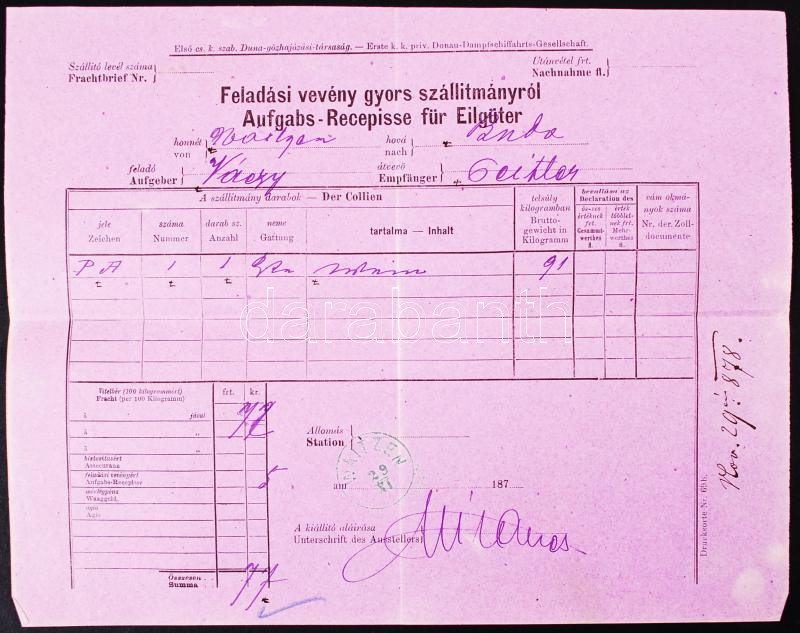 Első cs. k. szab. Duna-gőzhajózási-társaság. — Erste k. k. priv. Donau-Dampfschiffahrts-Gesellschaft.
Szállító levél száma
Frachtbrief Nr.
Utánvétel frt.
Nachnahme fl.
Feladási vevény gyors szállitmányról
Aufgabs-Recepisse für Eilgüter
honnét
von
hová
nach
feladó
Aufgeber
Váczy
átvevő
Empfänger
A szállitmány darabok — Der Collien
telsúly kilogramban
Brutto-gewicht in Kilogramm
bevallása az
Declaration des
vám okmányok száma
Nr. der Zoll-documente
jele
Zeichen
száma
Nummer
darab sz.
Anzahl
neme
Gattung
tartalma — Inhalt
össes értéknek frt.
Gesammtwerthes fl.
érték többletnek frt.
Mehrwerthes fl.
P A 1 1 Wein 91
darabanth
Vitelbér (100 kilogrammért)
Fracht (per 100 Kilogramm)
frt. kr.
à jával
à „
à „
biztositasért
Assecuranz
feladási vevényért
Aufgabs-Recepisse
5
mérlegpénz
Waaggeld.
agió
Agio
Összesen
Summa
77
Állomás
Station
WAITZEN
29
XI
am 187
A kiállitó aláirása
Unterschrift des Ausstellers
Nov. 29. 878.
Drucksorte-Nr. 69 B.